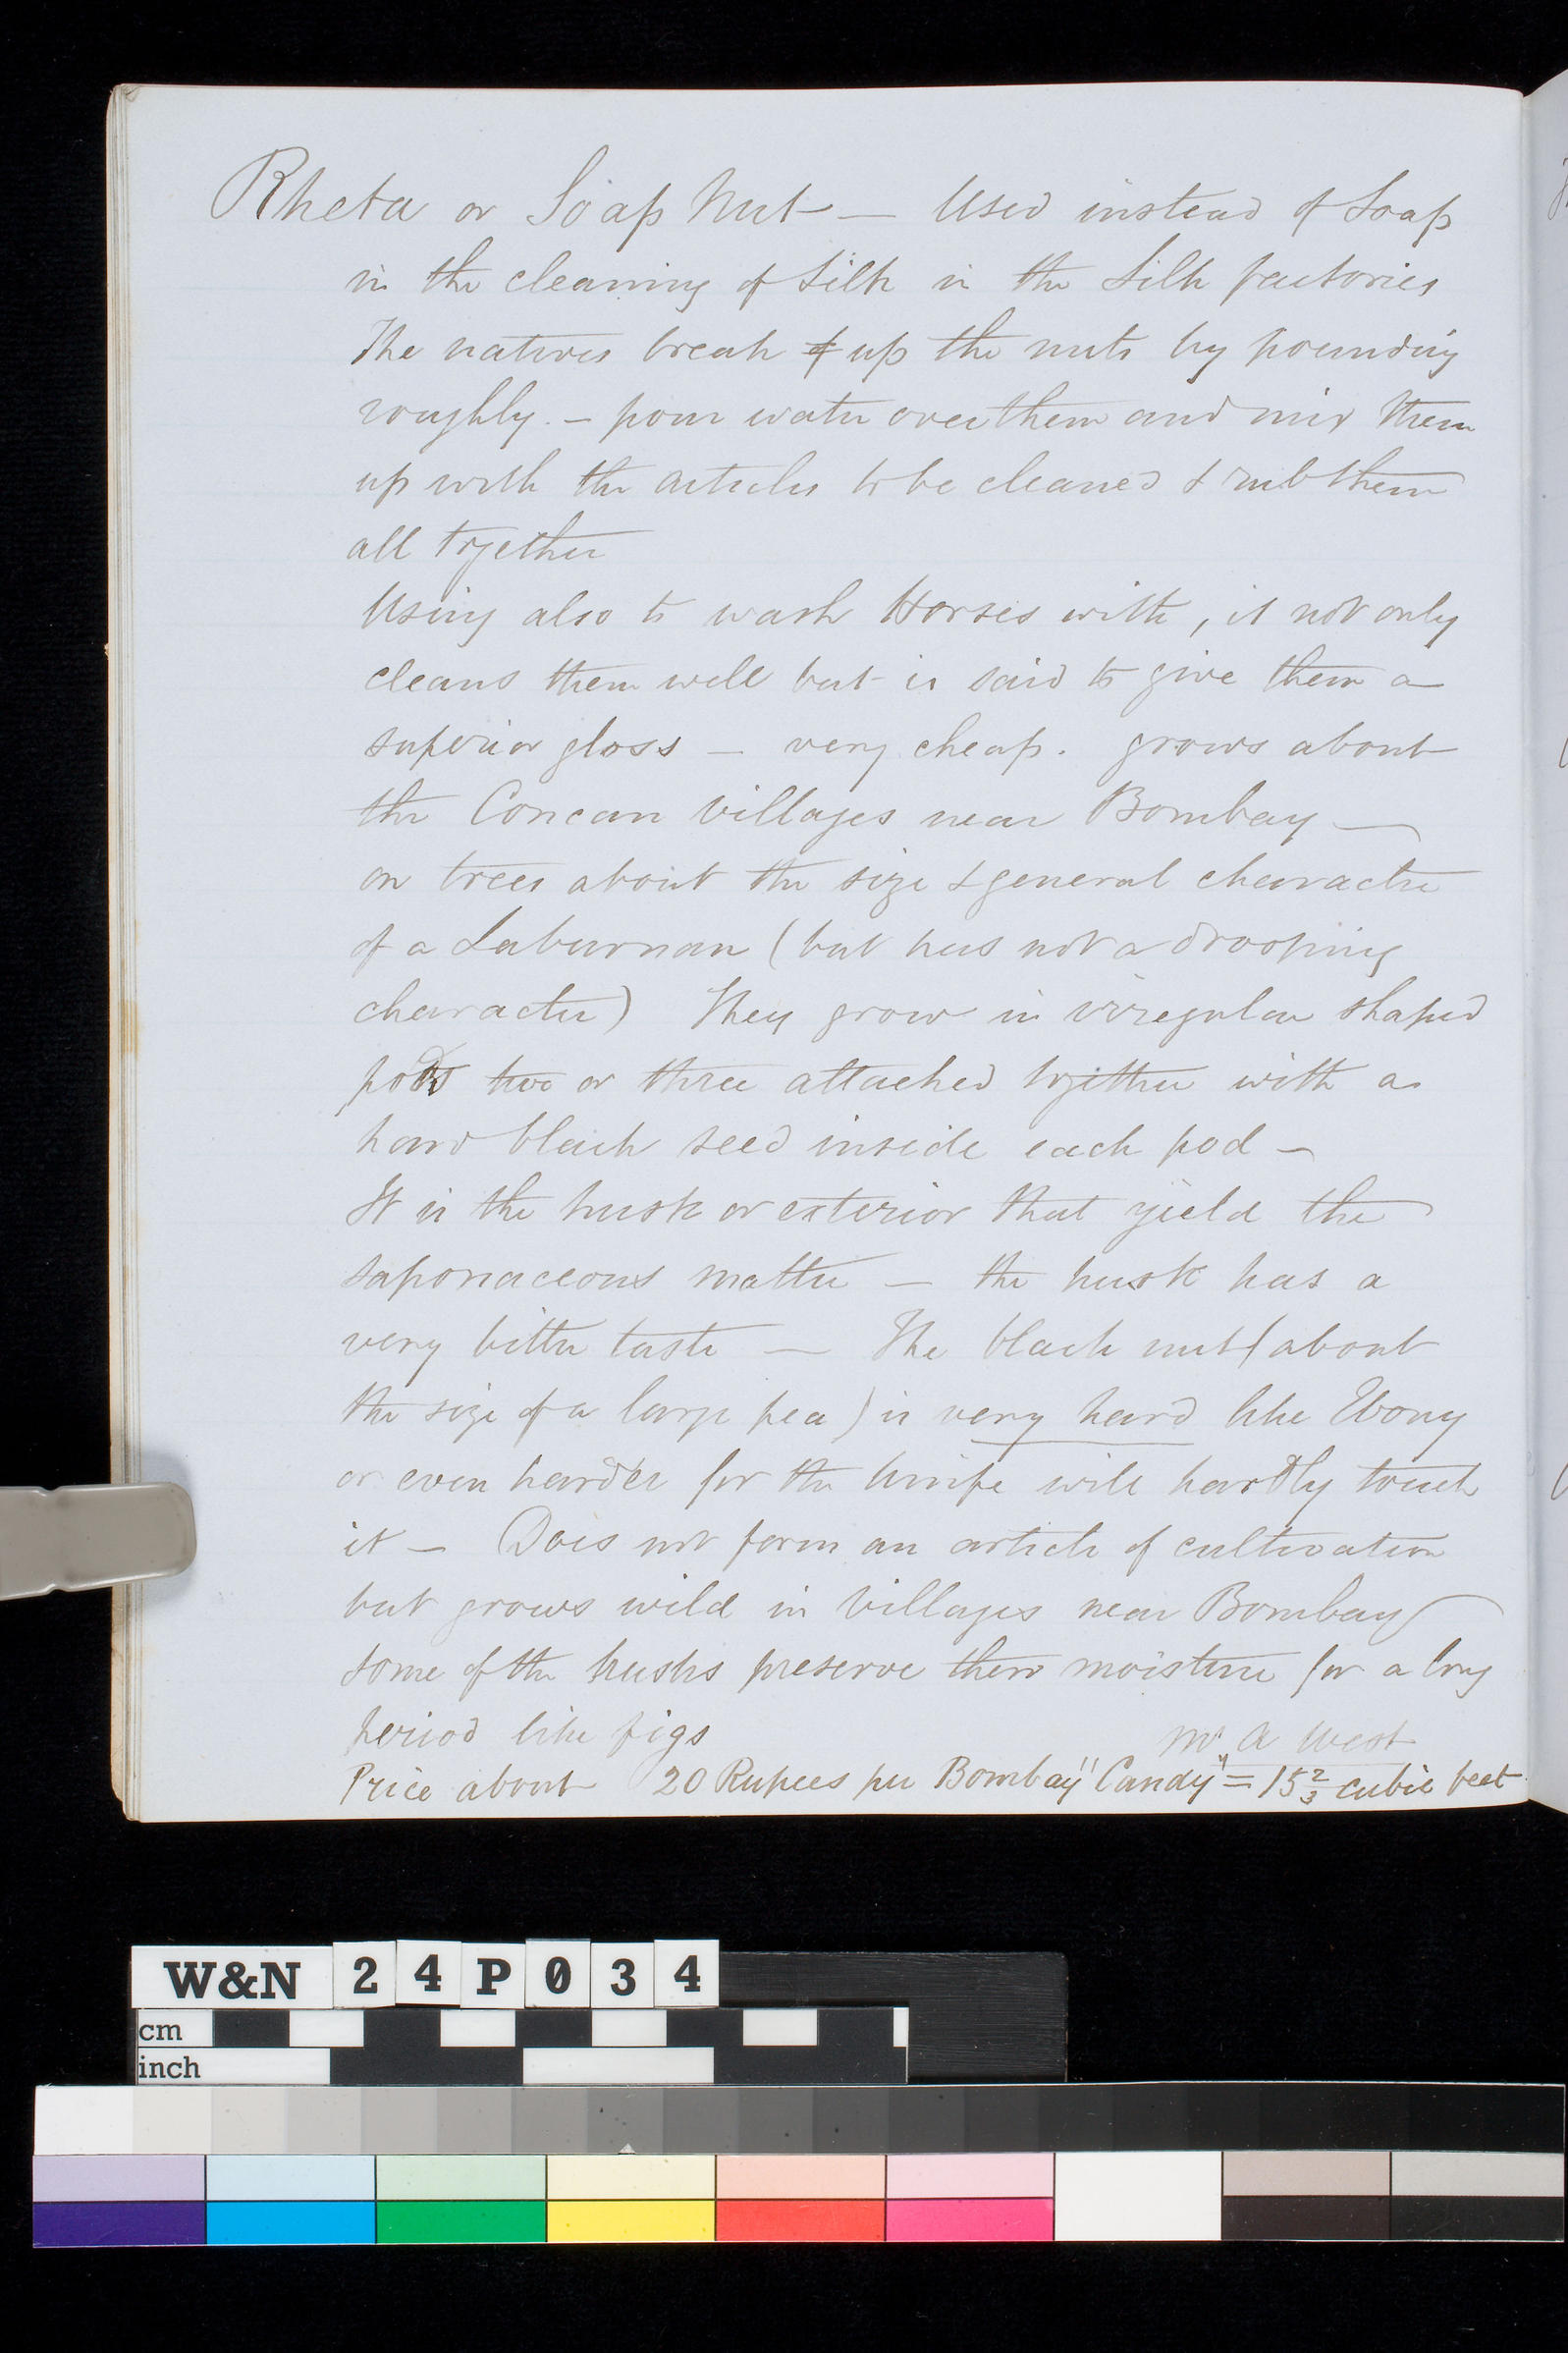 Rheta or Soap Nut — Used instead of Soap
in the cleaning of Silk in the Silk factories
The natives break up the nuts by pounding
roughly. — pour water over them and mix them
up with the articles to be cleaned & rub them
all together
Using also to wash Horses with, it not only
cleans them well but is said to give them a
superior gloss — very cheap. grows about
the Concan villages near Bombay —
on trees about the size & general character
of a Laburnan (but has not a drooping
character) They grow in irregular shaped
pods two or three attached together with a
hard black seed inside each pod —
It is the husk or exterior that yield the
saponaceous matter — the husk has a
very bitter taste — The black nut (about
the size of a large pea) is very hard like Ebony
or even harder for the knife will hardly touch
it — Does not form an article of cultivation
but grows wild in villages near Bombay
some of the husks preserve their moisture for a long
period like figs
Mr A West
Price about 20 Rupees per Bombay "Candy" = 15 2/3 cubic feet
W&N 24P034
cm
inch